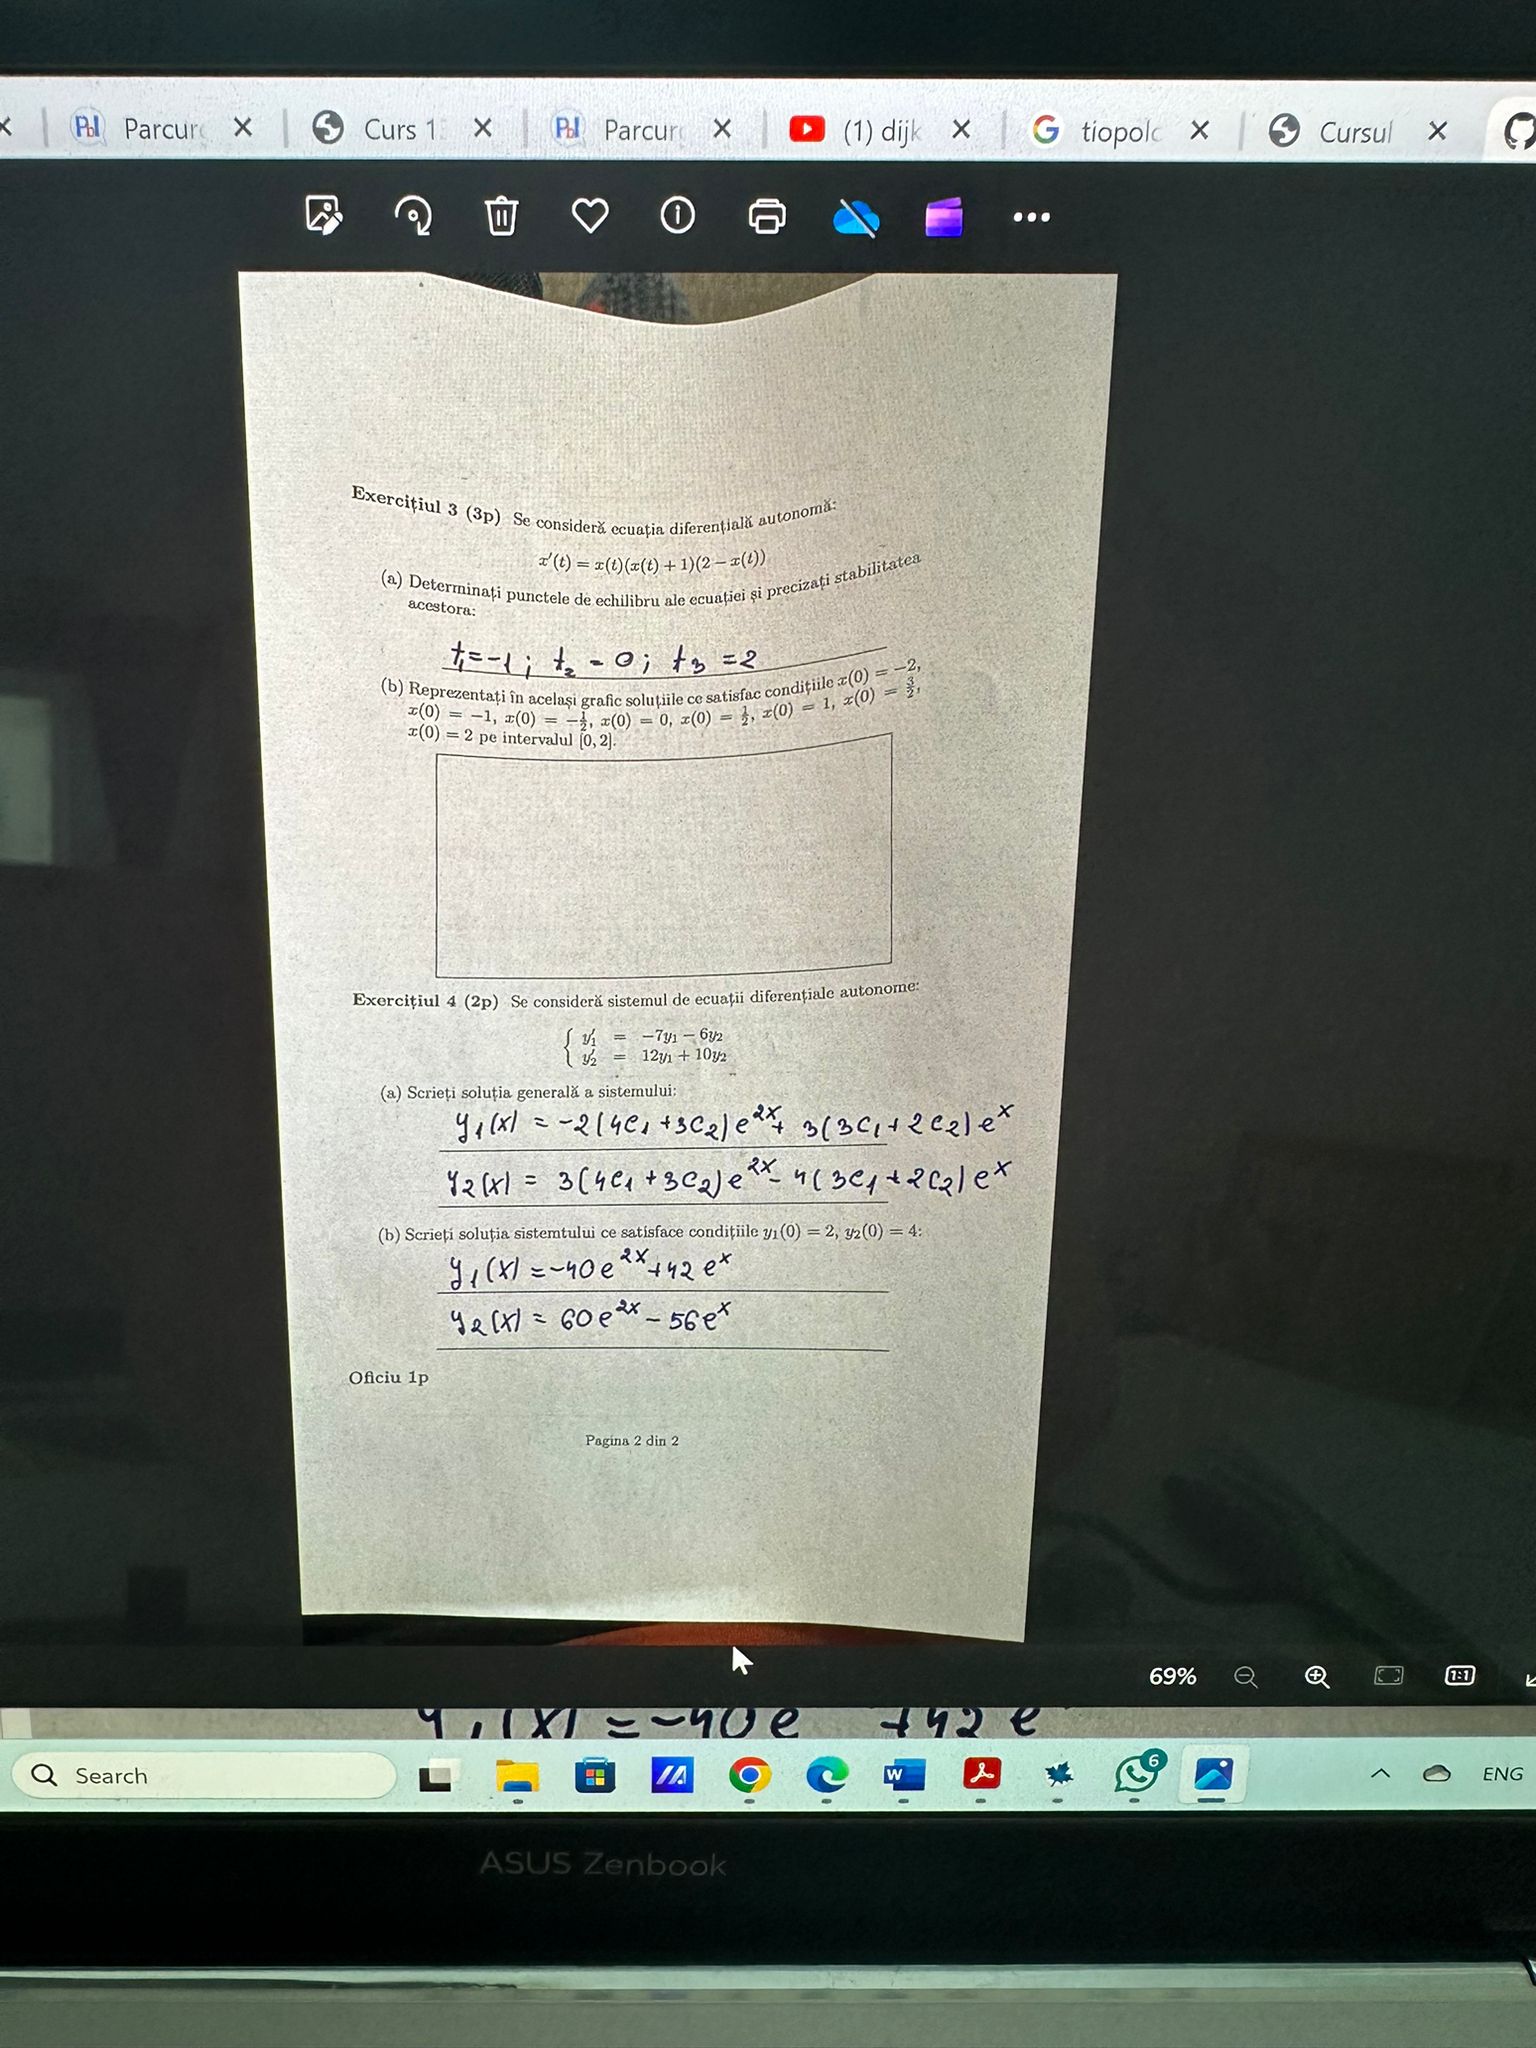 Parcurg
Curs 1
Parcurg
(1) dijk
tiopolo
Cursul
Exercițiul 3 (3p) Se consideră ecuația diferențială autonomă:
x′(t) = x(t)(x(t) + 1)(2 − x(t))
(a) Determinați punctele de echilibru ale ecuației și precizați stabilitatea
acestora:
t₁=-1; t₂ = 0; t₃ = 2
(b) Reprezentați în același grafic soluțiile ce satisfac condițiile x(0) = −2,
x(0) = −1, x(0) = −1/2, x(0) = 0, x(0) = 1/2, x(0) = 1, x(0) = 3/2,
x(0) = 2 pe intervalul [0, 2].
Exercițiul 4 (2p) Se consideră sistemul de ecuații diferențiale autonome:
{ y₁′ = −7y₁ − 6y₂
y₂′ = 12y₁ + 10y₂
(a) Scrieți soluția generală a sistemului:
y₁(x) = -2(4c₁+3c₂)e^2x + 3(3c₁+2c₂)e^x
y₂(x) = 3(4c₁+3c₂)e^2x - 4(3c₁+2c₂)e^x
(b) Scrieți soluția sistemtului ce satisface condițiile y₁(0) = 2, y₂(0) = 4:
y₁(x) = -40e^2x + 42e^x
y₂(x) = 60e^2x - 56e^x
Oficiu 1p
Pagina 2 din 2
69%
1:1
y₁(x) = -40e +42e
Search
W
6
ENG
ASUS Zenbook